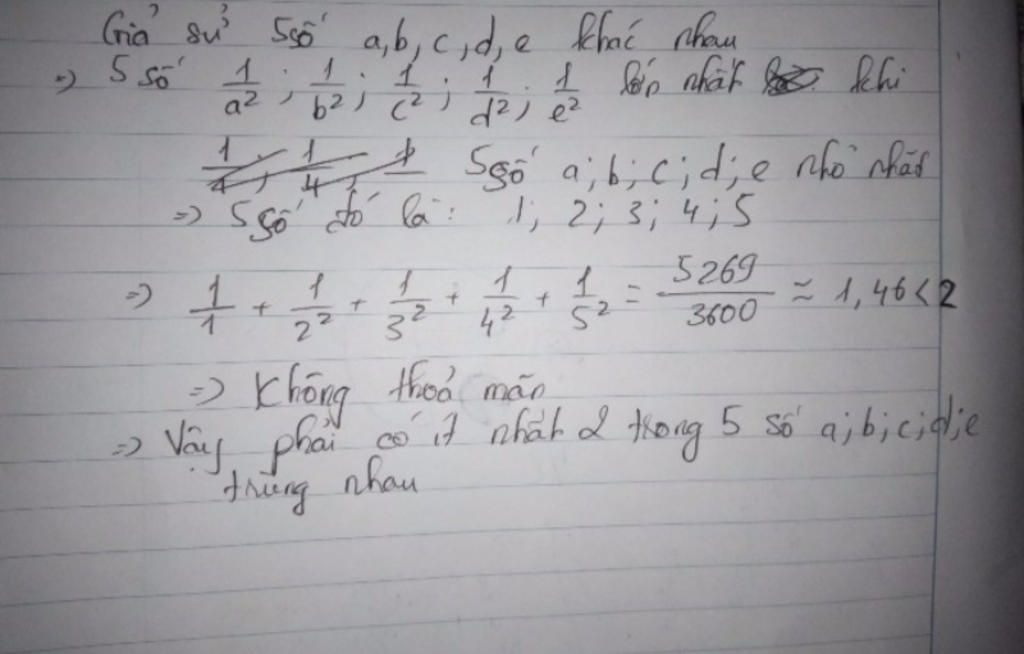 Giả sử 5 số a, b, c, d, e khác nhau
=> 5 số 1/a²; 1/b²; 1/c²; 1/d²; 1/e² lớn nhất khi
5 số a; b; c; d; e nhỏ nhất
=> 5 số đó là: 1; 2; 3; 4; 5
=> 1/1 + 1/2² + 1/3² + 1/4² + 1/5² = 5269/3600 ≈ 1,46 < 2
=> Không thoả mãn
=> Vậy phải có ít nhất 2 trong 5 số a; b; c; d; e
trùng nhau